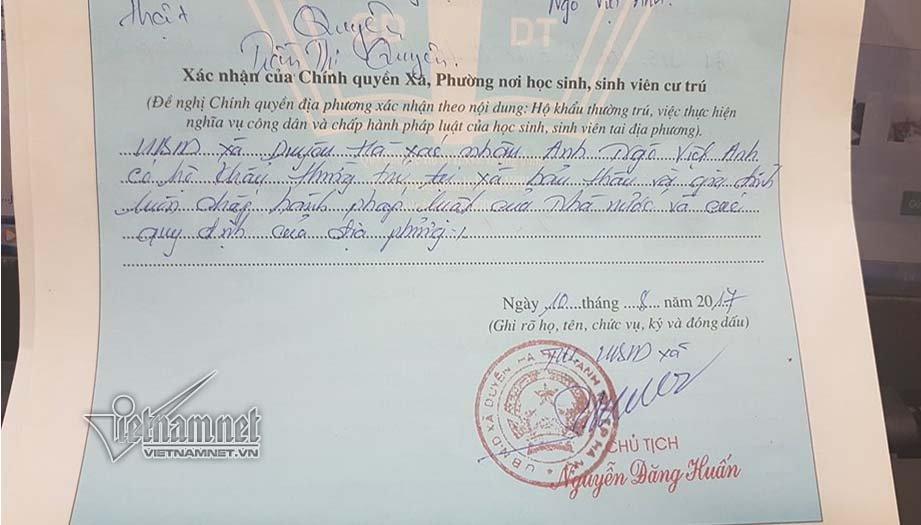 Ngô Việt Anh
thật
Quyên
GD ĐT
Trần Thị Quyên.
Xác nhận của Chính quyền Xã, Phường nơi học sinh, sinh viên cư trú
(Đề nghị Chính quyền địa phương xác nhận theo nội dung: Hộ khẩu thường trú, việc thực hiện
nghĩa vụ công dân và chấp hành pháp luật của học sinh, sinh viên tai địa phương).
UBND xã Duyên Hà xác nhận Anh Ngô Việt Anh
có hộ khẩu thường trú tại xã bản thân và gia đình
luôn chấp hành pháp luật của Nhà nước và các
quy định của địa phương./.
Ngày 10 tháng 8 năm 2017
(Ghi rõ họ, tên, chức vụ, ký và đóng dấu)
TM UBND xã
U.B.N.D XÃ DUYÊN HÀ
CHỦ TỊCH
Nguyễn Đăng Huấn
vietnamnet
VIETNAMNET.VN